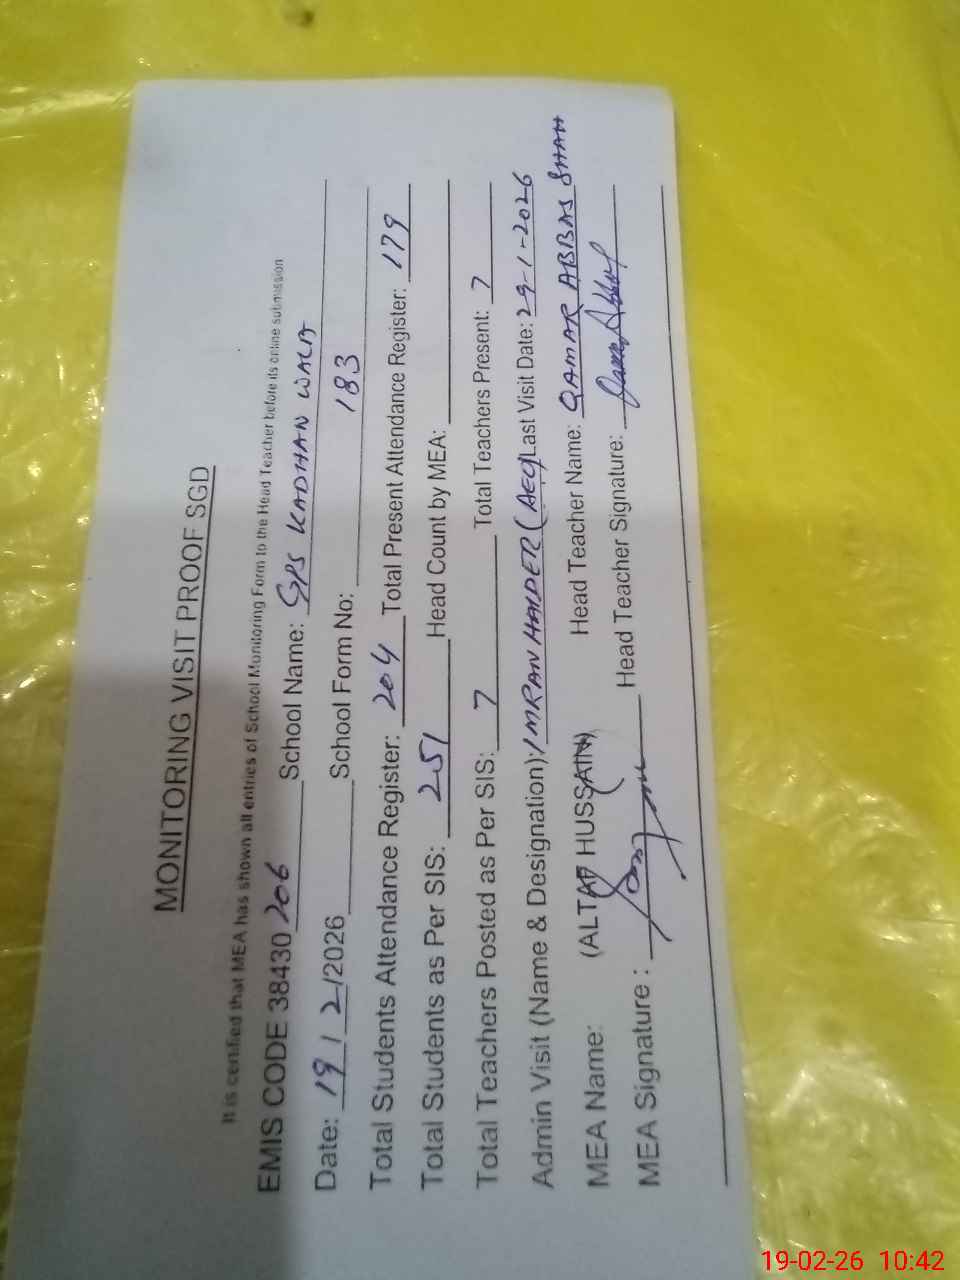 MONITORING VISIT PROOF SGD
It is certified that MEA has shown all entries of School Monitoring Form to the Head Teacher before its online submission
EMIS CODE 38430206 School Name: GPS KADHAN WALA
Date: 19/2/2026 School Form No: 183
Total Students Attendance Register: 204 Total Present Attendance Register: 179
Total Students as Per SIS: 251 Head Count by MEA:
Total Teachers Posted as Per SIS: 7 Total Teachers Present: 7
Admin Visit (Name & Designation): IMRAN HAIDER (AEO) Last Visit Date: 29-1-2026
MEA Name: (ALTAF HUSSAIN) Head Teacher Name: QAMAR ABBAS SHAH
MEA Signature: Head Teacher Signature:
19-02-26 10:42